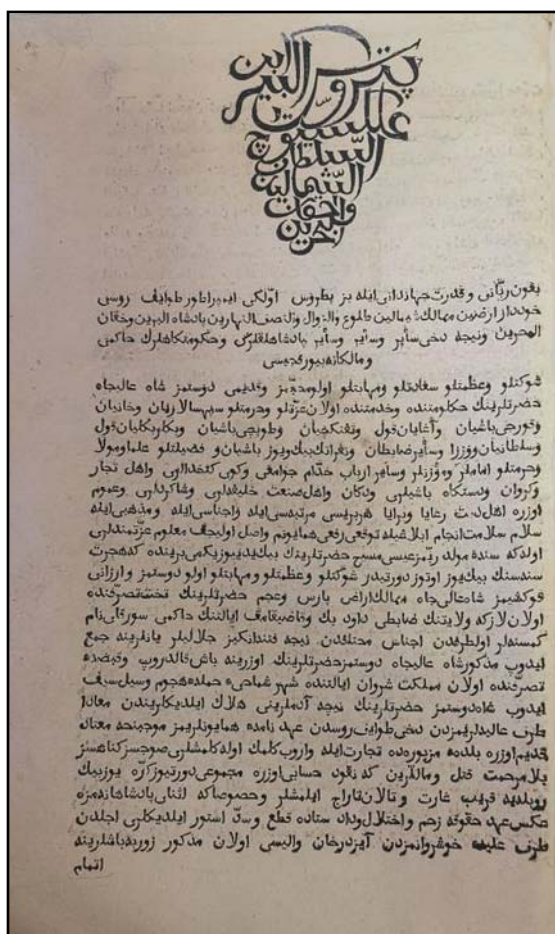 پتروس البیر ابن
علکسیوچ
السلطان
الشمالین
والخاقان
البحرین
بعون ربانی و قدرت جهاندانی ایله بز پطروس اولکی ایمپراطور طوایف روس
خوددار ارضین ممالک شمالین طلوع والزوال والنصف النهارین پادشاه البرین وخقان
البحرین ونیجه دخی سایر وسایر وسایر پادشاهلقلرک وحکومتکاهلرک حاکمی
ومالکانه بیورقجیسی
شوکتلو وعظمتلو سعادتلو ومهابتلو اولو محبمز وقدیمی دوستمز شاه عالیجاه
حضرتلرینک حکاومتنده وخدمتنده اولان عزتلو وحرمتلو سپهسالاریان وخانیان
وقورجی باشیان وآغایان قول وتفنکچیان وطوپچی باشیان وبکلربکلیان قول
وسلطانیان ووزرا وسایر ضابطان ونفراتک بیک ویوز باشیان وفضیلتلو علما ومولا
وحرمتلو اماملر ومؤذنلر وسایر ارباب خدام جوامعی وکوی کتخدالری واهل تجار
وکروان ودستکاه باشیلری ودکان واهل صنعت خلیفه‌لری وشاکردلری وعموم
اوزره اهل رعایا وبرایا هر بریسی مرتبه‌سی ایله واجناسی ایله ومذهبی ایله
سلام سلامت انجام ابلاغیله توقیعی رفعی همایونم واصل اولیجق معلوم عزتمندلری
اوله که سنهٔ مولد ربمز عیسی مسیح حضرتلرینک بیک یدییوز یکرمی برینده که هجرت
سنه‌سنک بیک یوز اوتوز دورتیدر شوکتلو وعظمتلو ومهابتلو اولو دوستمز وارزانی
قوکشیمز شاه عالی جاه ممالک اراضی پارس وعجم حضرتلرینک تخت تصرفنده
اولان لازکه ولایتنک ضابطی داود بک وقاضی قامق ایالتنک حاکمی سورقای نام
کمسنه‌لر اول طرفدن اجناس مختلفدن نیجه فتنه‌انکیز جلالیلر یانلرینه جمع
ایدوب مذکور شاه عالیجاه دوستمز حضرتلرینک اوزرینه باش قالدروپ وقبضهٔ
تصرفنده اولان مملکت شروان ایالتنده شهر شماخیء حمله هجوم وسیل سیف
ایدوب شاه دوستمز حضرتلرینک نیجه آدملرینی هلاک ایلدیکلریندن معادا
طرف عالیه‌لرمزدن دخی طوایف روسدن عهد نامهٔ همایونلریمز موجبنجه معتاد
قدیم اوزره بلدهٔ مزبوره‌ده تجارت ایله واروب کلمک اوله کلمشلری صوجسز کناهسز
بلا مرحمت قتل وماللرین که نقود حسابی اوزره مجموعی دورت یوز کره یوز بیک
روبلیه قریب غارت وتالان تاراج ایلمشلر وخصوصا که لثنای پادشاهانه‌مزه
عکس عهد حقوقه زحم واختلال وداد ستاده قطع وسد استور ایلدیکلری اجلدن
طرف علیهٔ خوشروانمزدن آیزدرخان والیسی اولان مذکور زوربه باشلرینه
اتمام